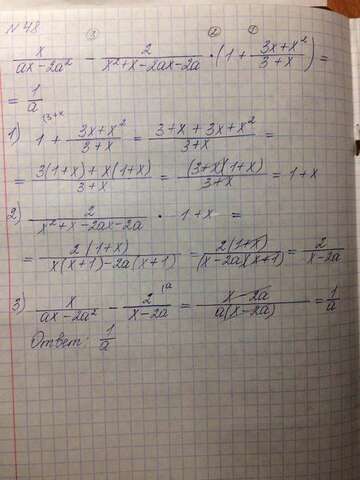 №48
③ ② ①
x/(ax-2a²) - 2/(x²+x-2ax-2a) · (1 + (3x+x²)/(3+x)) =
= 1/a
1) 1 (3+x + (3x+x²)/(3+x) = (3+x+3x+x²)/(3+x) =
= (3(1+x)+x(1+x))/(3+x) = ((3+x)(1+x))/(3+x) = 1+x
2) 2/(x²+x-2ax-2a) · 1+x =
= 2(1+x)/(x(x+1)-2a(x+1)) = 2(1+x)/((x-2a)(x+1)) = 2/(x-2a)
3) x/(ax-2a²) - 2/(x-2a) (a = (x-2a)/(a(x-2a)) = 1/a
Ответ: 1/a